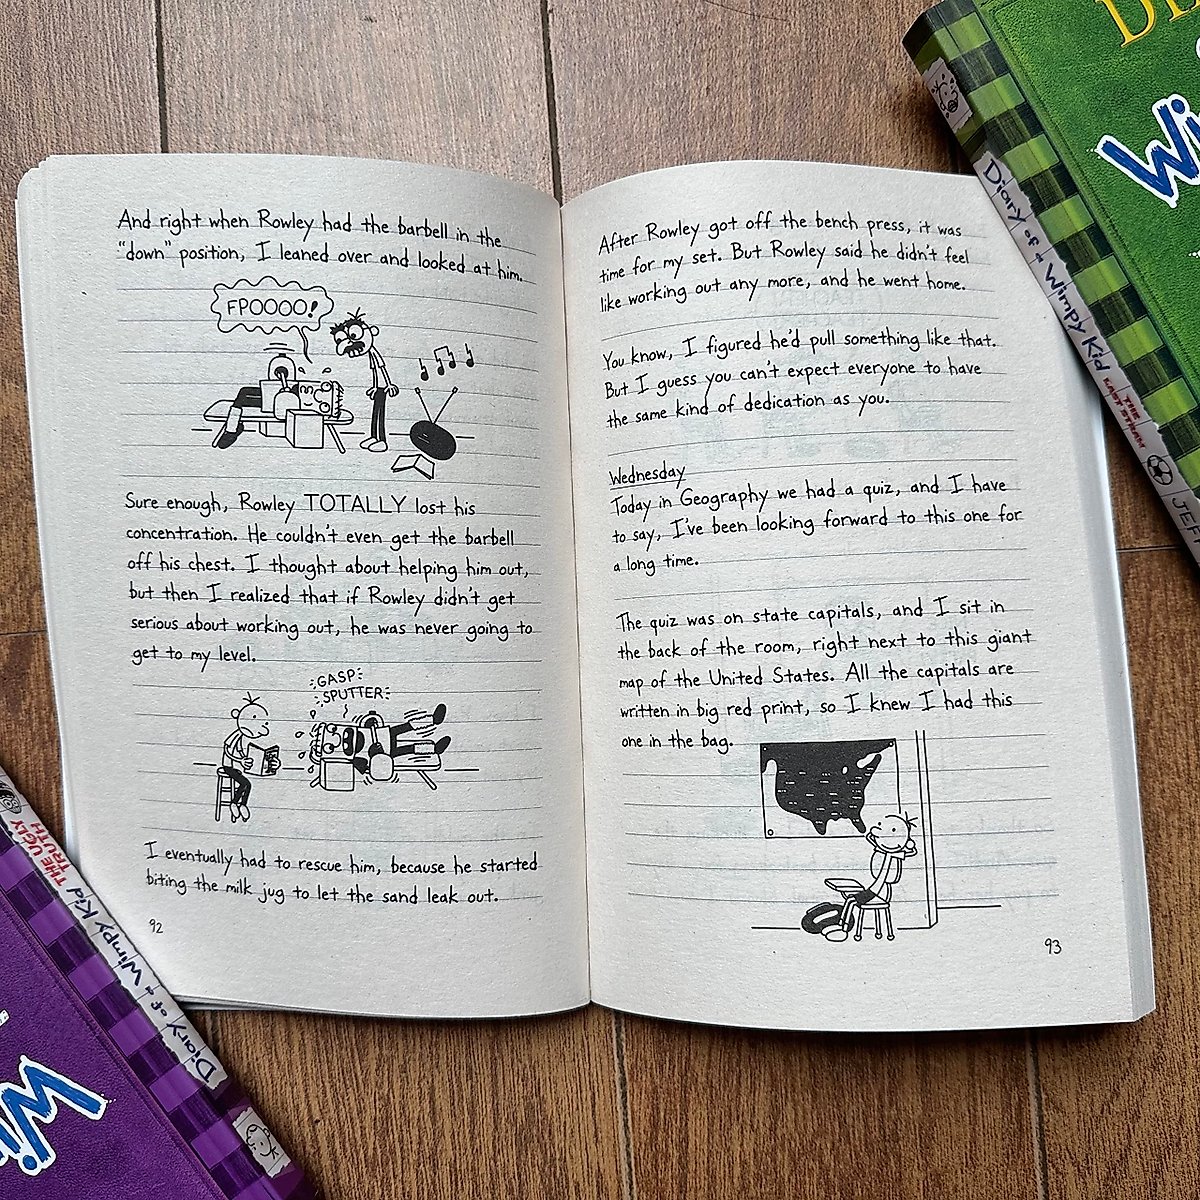 And right when Rowley had the barbell in the
"down" position, I leaned over and looked at him.
FPOOOO!
Sure enough, Rowley TOTALLY lost his
concentration. He couldn't even get the barbell
off his chest. I thought about helping him out,
but then I realized that if Rowley didn't get
serious about working out, he was never going to
get to my level.
GASP
SPUTTER
I eventually had to rescue him, because he started
biting the milk jug to let the sand leak out.
92
After Rowley got off the bench press, it was
time for my set. But Rowley said he didn't feel
like working out any more, and he went home.
You know, I figured he'd pull something like that.
But I guess you can't expect everyone to have
the same kind of dedication as you.
Wednesday
Today in Geography we had a quiz, and I have
to say, I've been looking forward to this one for
a long time.
The quiz was on state capitals, and I sit in
the back of the room, right next to this giant
map of the United States. All the capitals are
written in big red print, so I knew I had this
one in the bag.
93
Diary of a Wimpy Kid
THE
LAST STRAW
Diary of a Wimpy Kid
THE UGLY
TRUTH